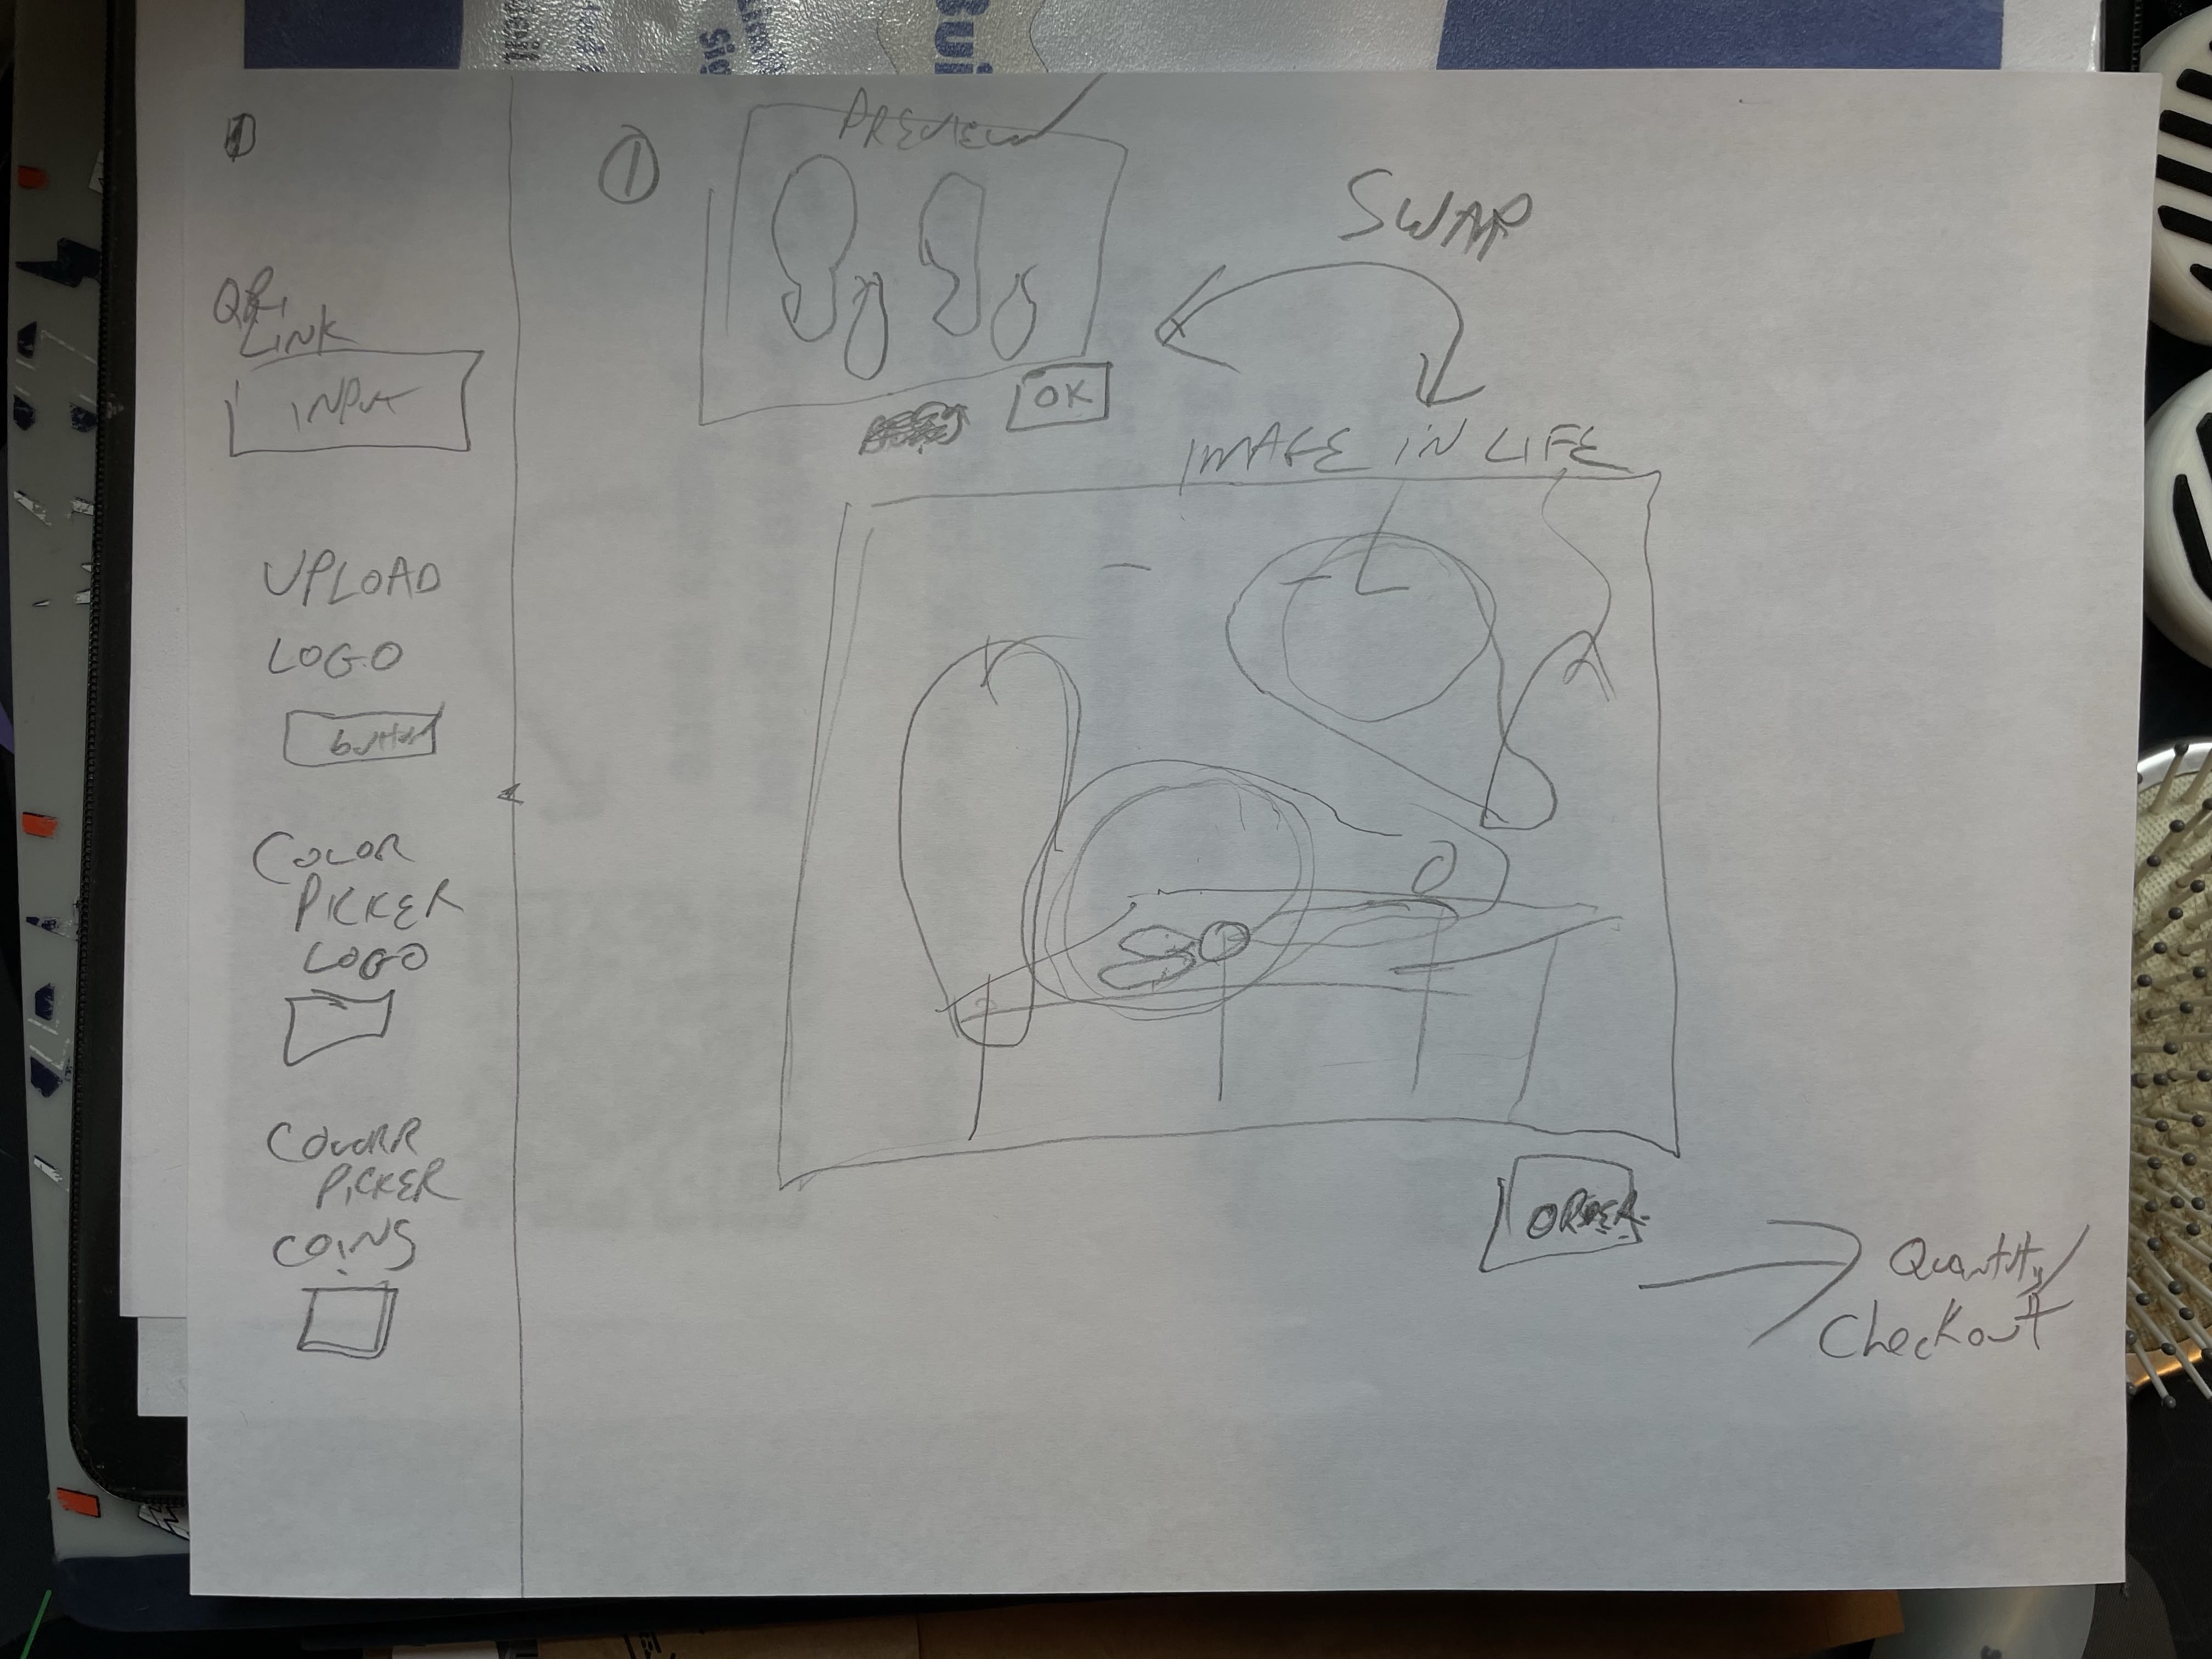 QR
LINK
INPUT
UPLOAD
LOGO
button
COLOR
PICKER
LOGO
COLORR
PICKER
COINS
1
PREVIEW
OK
SWAP
IMAGE IN LIFE
ORDER
Quantity/
Checkout